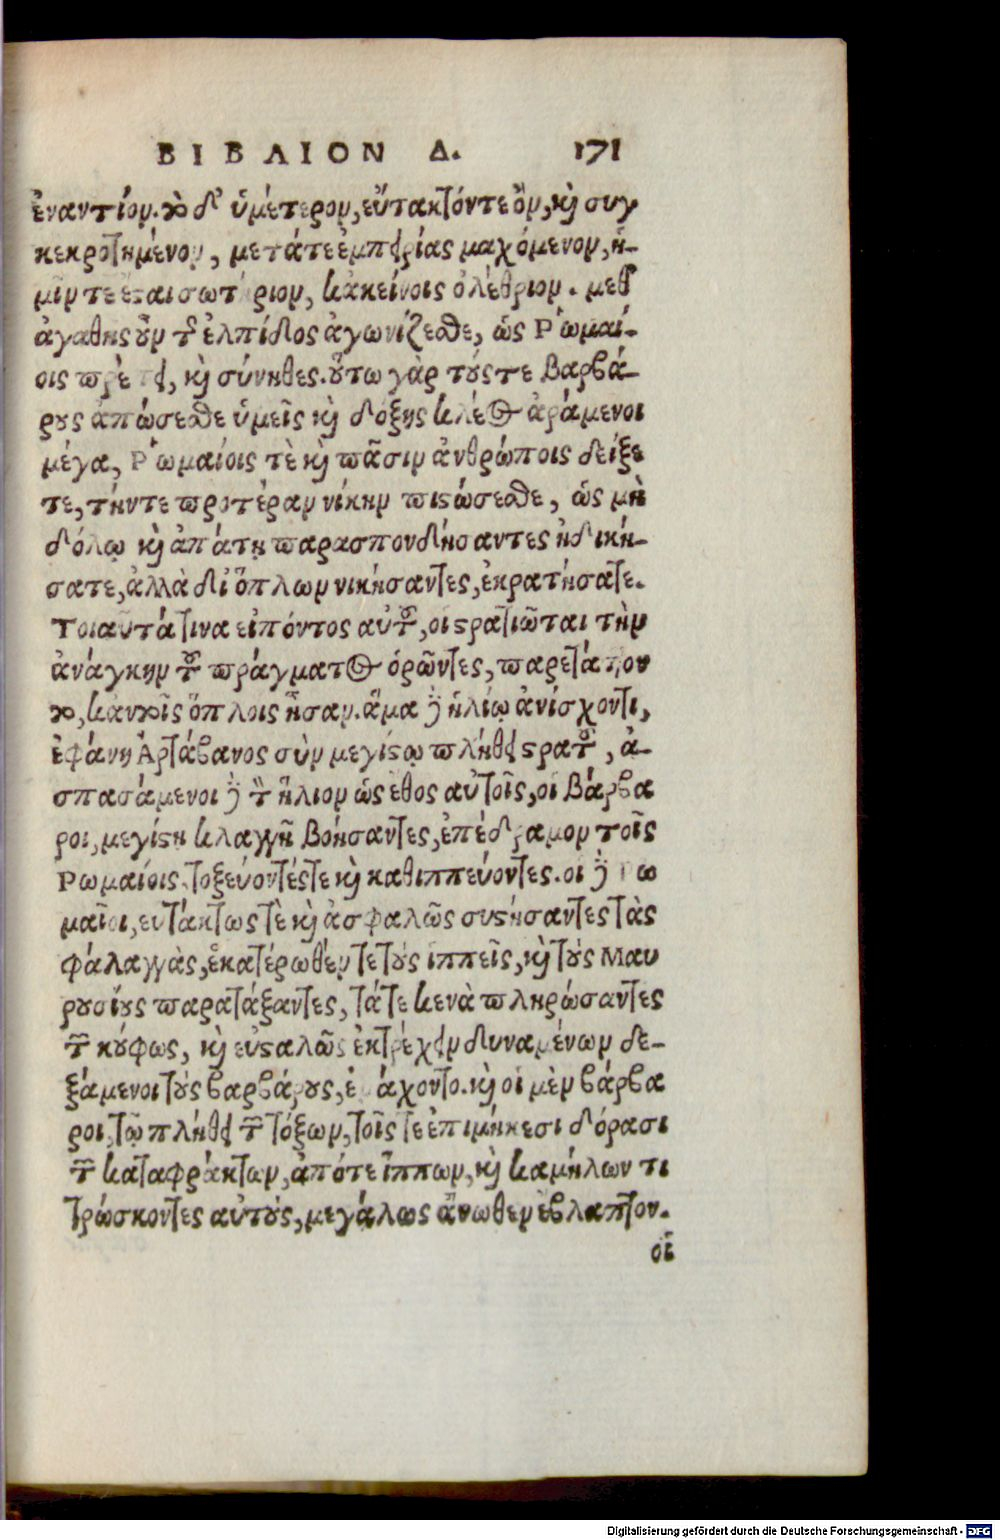 ΒΙΒΛΙΟΝ Δ. 171
ἐναντίον. τὸ δ' ὑμέτερον, εὔτακτόντε ὂν, καὶ συγ
κεκροτημένον, μετάτε ἐμπειρίας μαχόμενον, ἡ-
μῖν τε ἔσται σωτήριον, κἀκείνοις ὀλέθριον. μεθ'
ἀγαθῆς οὖν τῆς ἐλπίδος ἀγωνίζεσθε, ὡς Ῥωμαί-
οις πρέπει, καὶ σύνηθες. οὕτω γὰρ τούς τε Βαρβά-
ρους ἀπώσεσθε ὑμεῖς καὶ δόξης κλέος ἀράμενοι
μέγα, Ῥωμαίοις τὲ καὶ πᾶσιν ἀνθρώποις δείξε
τε, τήντε προτέραν νίκην πιστώσεσθε, ὡς μὴ
δόλῳ καὶ ἀπάτῃ παρασπονδήσαντες ἠδική-
σατε, ἀλλὰ δι' ὅπλων νικήσαντες, ἐκρατήσατε.
Τοιαῦτά τινα εἰπόντος αὐτοῦ, οἱ στρατιῶται τὴν
ἀνάγκην τοῦ πράγματος ὁρῶντες, παρετάττον
το, κἀν τοῖς ὅπλοις ἦσαν. ἅμα δὲ ἡλίῳ ἀνίσχοντι,
ἐφάνη Ἀρτάβανος σὺν μεγίστῳ πλήθει στρατοῦ, ἀ-
σπασάμενοι δὲ τὸν ἥλιον ὡς ἔθος αὐτοῖς, οἱ Βάρβα
ροι, μεγίστη κλαγγῆ βοήσαντες, ἐπέδραμον τοῖς
Ῥωμαίοις, τοξεύοντές τε καὶ καθιππεύοντες. οἱ δὲ Ῥω
μαῖοι, εὐτάκτως τὲ καὶ ἀσφαλῶς συστήσαντες τὰς
φάλαγγὰς, ἑκατέρωθέν τε τοὺς ἱππεῖς, καὶ τοὺς Μαυ
ρουσίους παρατάξαντες, τά τε κενὰ πληρώσαντες
τῶν κούφως, καὶ εὐσταλῶς ἐκτρέχειν δυναμένων δε-
ξάμενοι τοὺς βαρβάρους, ἐμάχοντο. καὶ οἱ μὲν βάρβα
ροι, τῷ πλήθει τῶν τόξων, τοῖς τε ἐπιμήκεσι δόρασι
τῶν κατα φράκτων, ἀπό τε ἵππων, καὶ καμήλων τι
τρώσκοντες αὐτοὺς, μεγάλως ἄνωθεν ἔβλαπτον.
οἵ
Digitalisierung gefördert durch die Deutsche Forschungsgemeinschaft - DFG